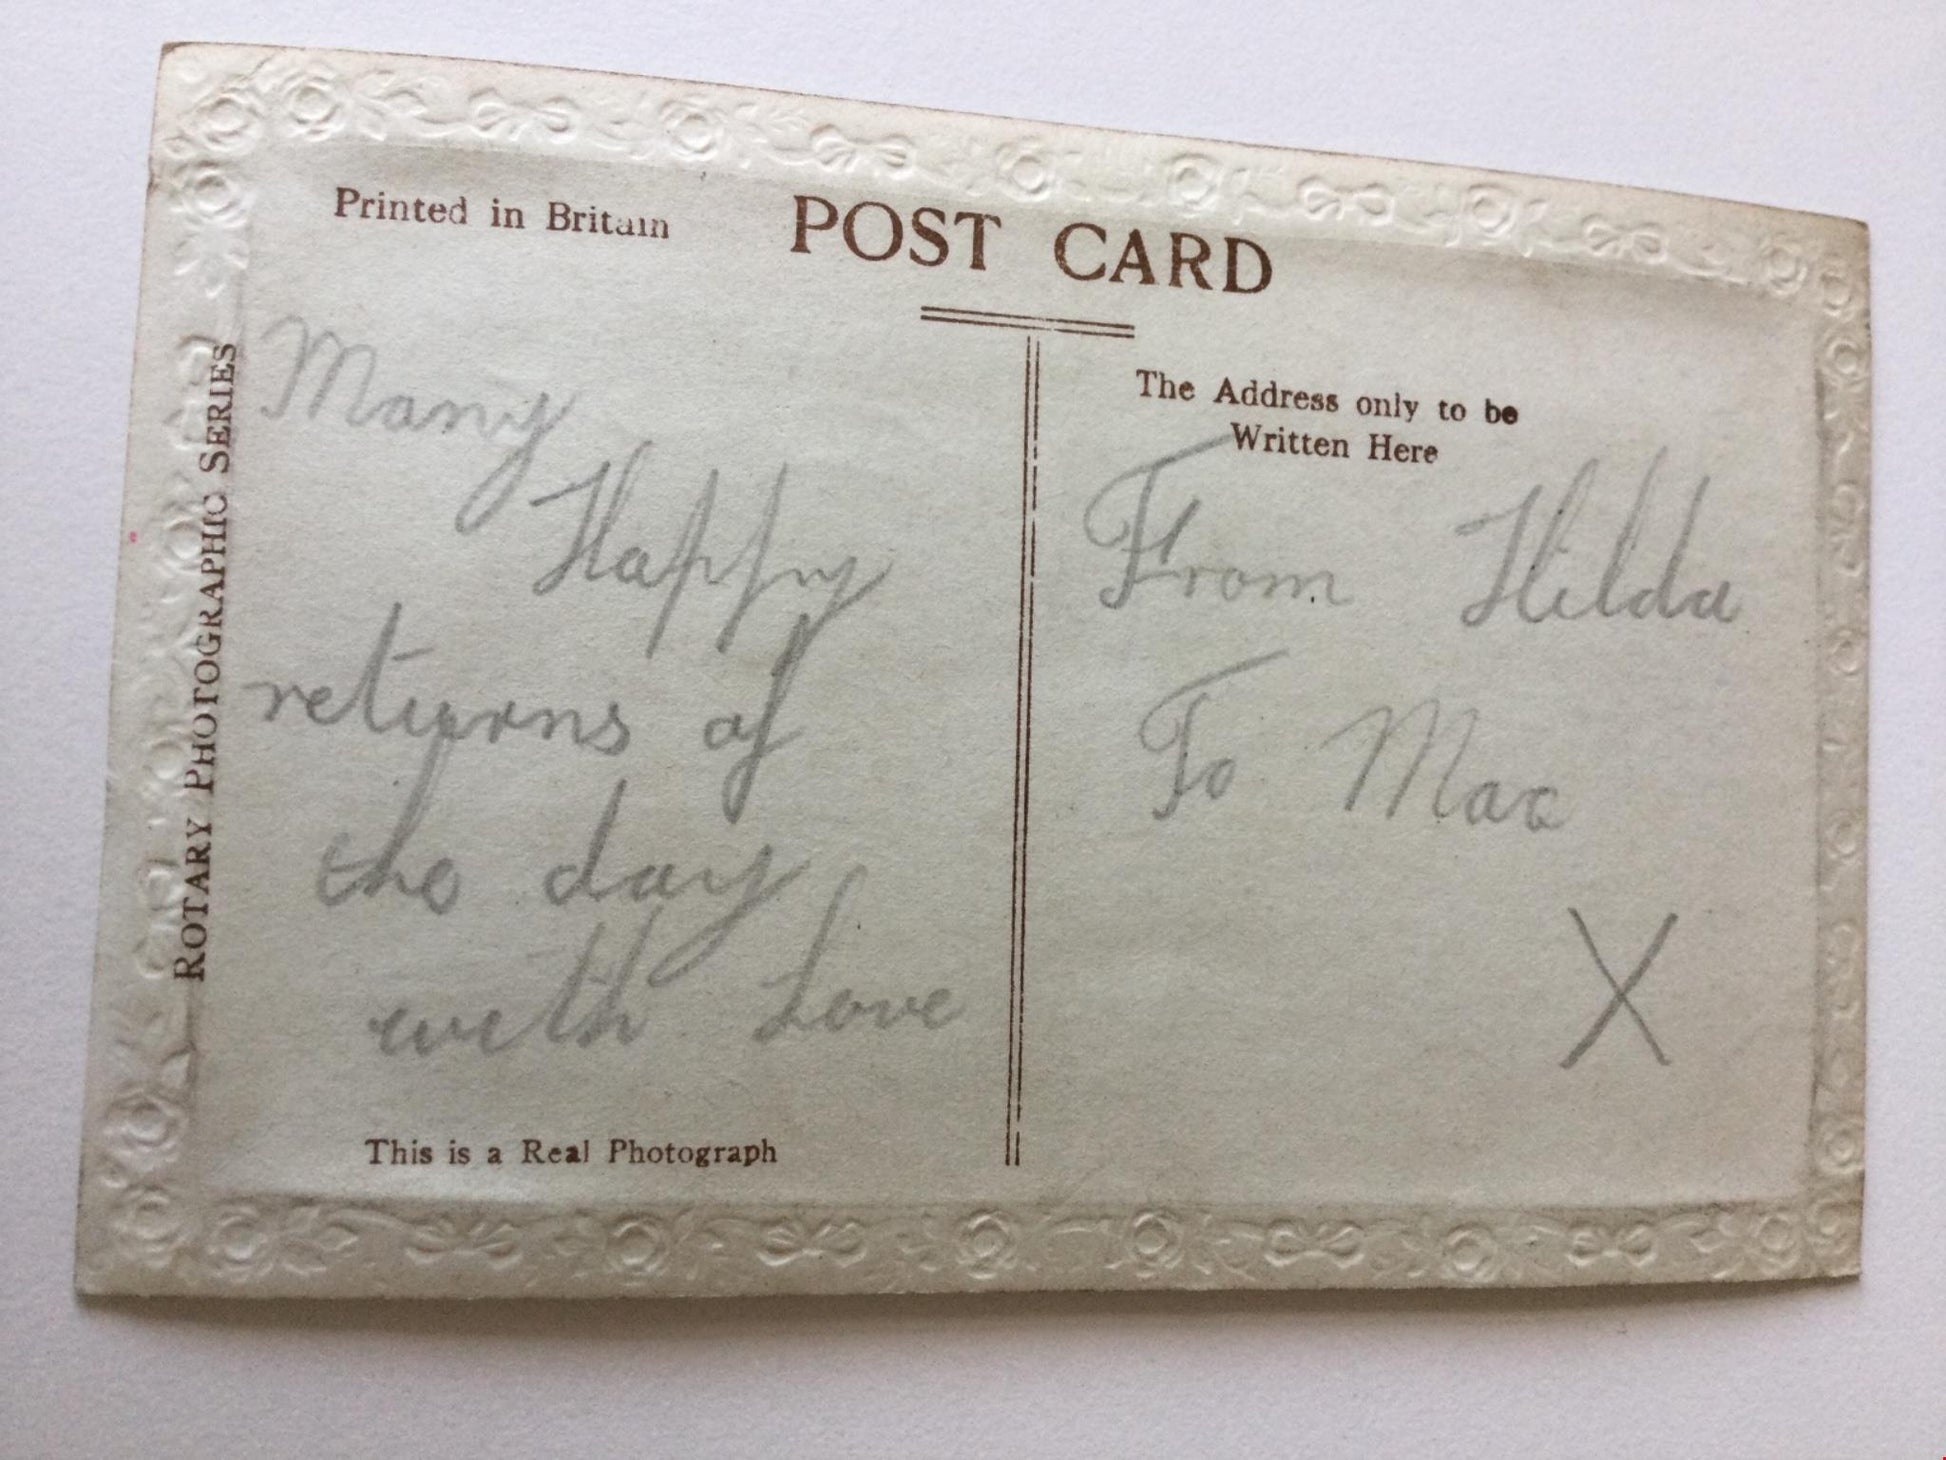 Printed in Britain
POST CARD
ROTARY PHOTOGRAPHIC SERIES
Many
Happy
returns of
the day
with Love
This is a Real Photograph
The Address only to be
Written Here
From Hilda
To Max
X